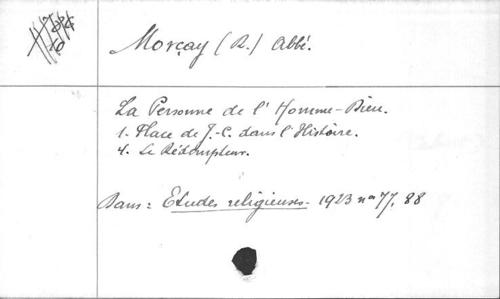 Morçay (R.) Abbé.
La Personne de l'Homme-Dieu.
1. Place de J.-C. dans l'Histoire.
4. Le Rédempteur.
Dans : Etudes religieuses - 1923 nos 77, 88